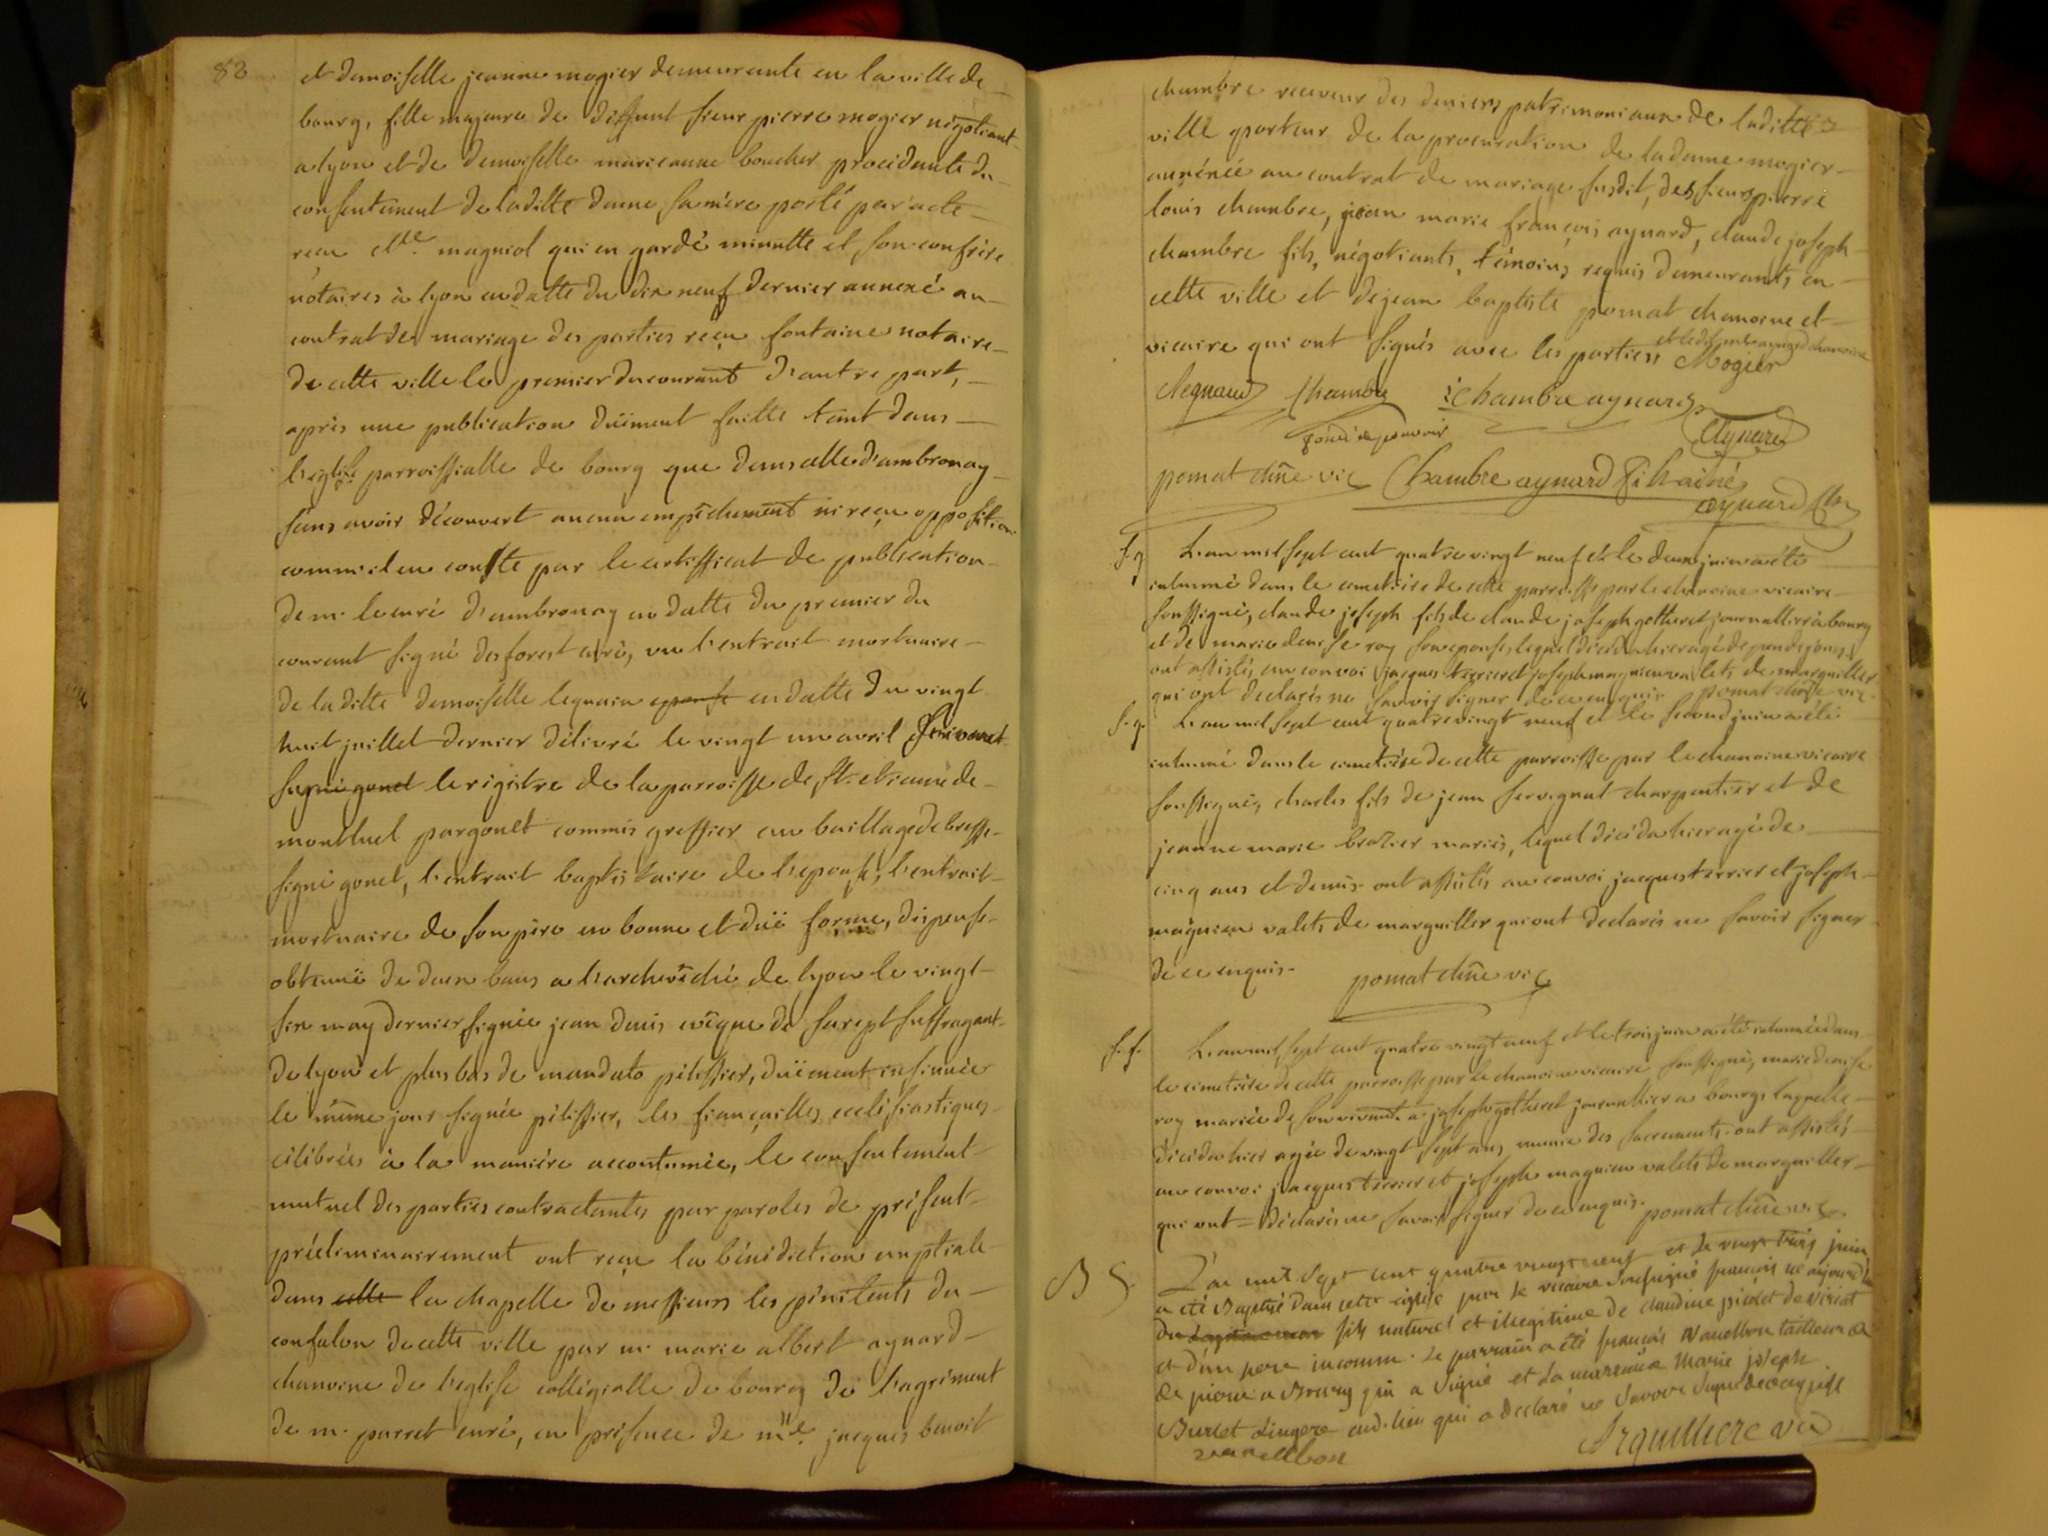 82
et demoiselle jeanne mogier demeurante en la ville de
bourg, fille majeure de deffunt sieur pierre mogier négotiant
a lyon et de demoiselle marieanne boucher procédante du
consentement de laditte dame sa mère porté par acte
reçu Me magniol qui en garde minutte et son confrère
notaires à lyon en datte du dix neuf dernier annexé au
contrat de mariage des parties reçu fontaine notaire
de cette ville le premier du courant d'autre part,
après une publication düement faitte tant dans
l'eglise parroissialle de bourg que dans celle d'ambronay
sans avoir découvert aucun empêchement ni reçu opposition
comme il en conste par le certifficat de publication
de mr le curé d'ambronay en datte du premier du
courant signé desforest curé, vu l'extrait mortuaire
de laditte demoiselle lequain epouse en datte du vingt
huit juillet dernier délivré le vingt un avril suivant
signé gonet le registre de la parroisse de st etienne de
montluel par gonet commis greffier au baillage de bresse
signé gonet, l'extrait baptistaire de l'epouse, l'extrait
mortuaire de son père en bonne et düe forme, dispense
obtenüe de deux bans a l'archevêché de lyon le vingt
six may dernier signée jean denis evêque de sarept suffragant
de lyon et plus bas de mandato pelissier, düement insinuée
le même jour signée pélissier, les fiançailles ecclésiastiques
célébrées à la manière accoutumée, le consentement
mutuel des parties contractantes par paroles de présent
préliminairement ont reçu la bénédiction nuptiale
dans celle la chapelle de messieurs les pénitents du
confalon de cette ville par mr marie albert aynard
chanoine de l'eglise collégialle de bourg de l'agrément
de mr parret curé, en présence de me jacques benoit
chambre receveur des deniers patrimoniaux de laditte
ville porteur de la procuration de la dame mogier
annéxée au contrat de mariage susdit, des sieurs pierre
louis chambre, jean marie françois aynard, claude joseph
chambre fils, négotiants, témoins requis demeurants en
cette ville et de jean baptiste pomat chanoine et
vicaire qui ont signés avec les parties et ledit mr aynard chanoine
Mogier
chambre chambre aynard
fondé de pouvoir
Aynard
pomat chne vic Chambre aynard fils ainé
aynard chne
S.g. L'an mil sept cent quatre vingt neuf et le deux juin a été
inhumé dans le cimetière de cette parroisse par le chanoine vicaire
soussigné, claude joseph fils de claude joseph gotheret journallier à bourg
et de marie denise roy son epouse, lequel décéda hier agé de
ont assistés au convoi jacques terrier et joseph magnien valets de marguiller
qui ont declarés ne savoir signer de ce enquis. pomat chne vic
S.g. L'an mil sept cent quatre vingt neuf et le second juin a été
inhumé dans le cimetière de cette parroisse par le chanoine vicaire
soussigné, charles fils de jean servignat charpentier et de
jeanne marie brazier mariés, lequel décéda hier agé de
cinq ans et demis. ont assistés au convoi jacques terrier et joseph
magnien valets de marguiller qui ont declarés ne savoir signer
de ce enquis. pomat chne vic
S.f. L'an mil sept cent quatre vingt neuf et le trois juin a été inhumée dans
le cimetière de cette parroisse par le chanoine vicaire soussigné, marie denise
roy mariée de son vivant a joseph gotheret journallier a bourg laquelle
décéda hier agée de vingt sept ans, munie des sacrements. ont assistés
au convoi jacques terrier et joseph magnien valets de marguiller
qui ont declarés ne savoir signer de ce enquis. pomat chne vic
B g L'an mil sept cent quatre vingt neuf et le vingt trois juin
a été Baptisé dans cette église par le vicaire soussigné françois né aujourd'hui
fils naturel et illegitime de claudine picolet de viriat
et d'un pere inconnu. Le parrain a été françois Vanelbon tailleur de
de pierre a Bourg qui a signé et la marraine Marie joseph
Burlet Lingere aud. lieu qui a declaré ne savoir signer de ce enquise
vanelbon Arquilliere vic